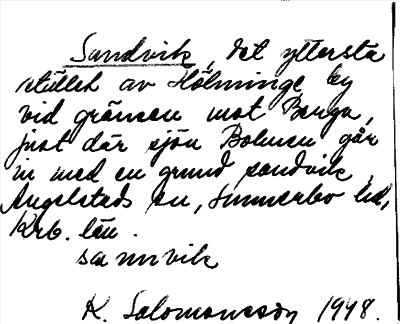 Sandvik, det yttersta
stället av Hölminge by
vid gränsen mot Berga,
just där sjön Bolmen går
in med en grund sandvik,
Angelstads sn, Sunnerbo hd,
Krb. län.
sannvik
K. Salomonsson 1948.